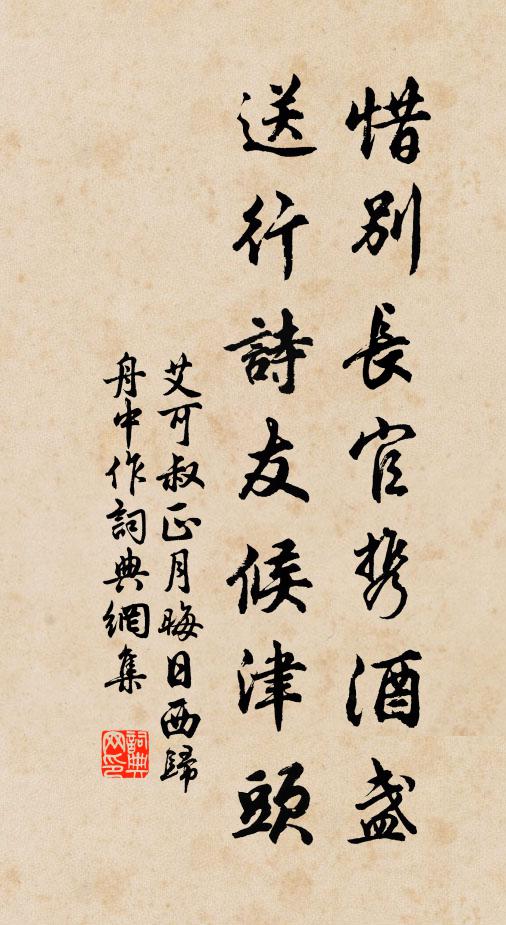 惜别長官携酒盏
送行詩友候津頭
艾可叔正月晦日西歸
舟中作詞典網集
詞典
网印